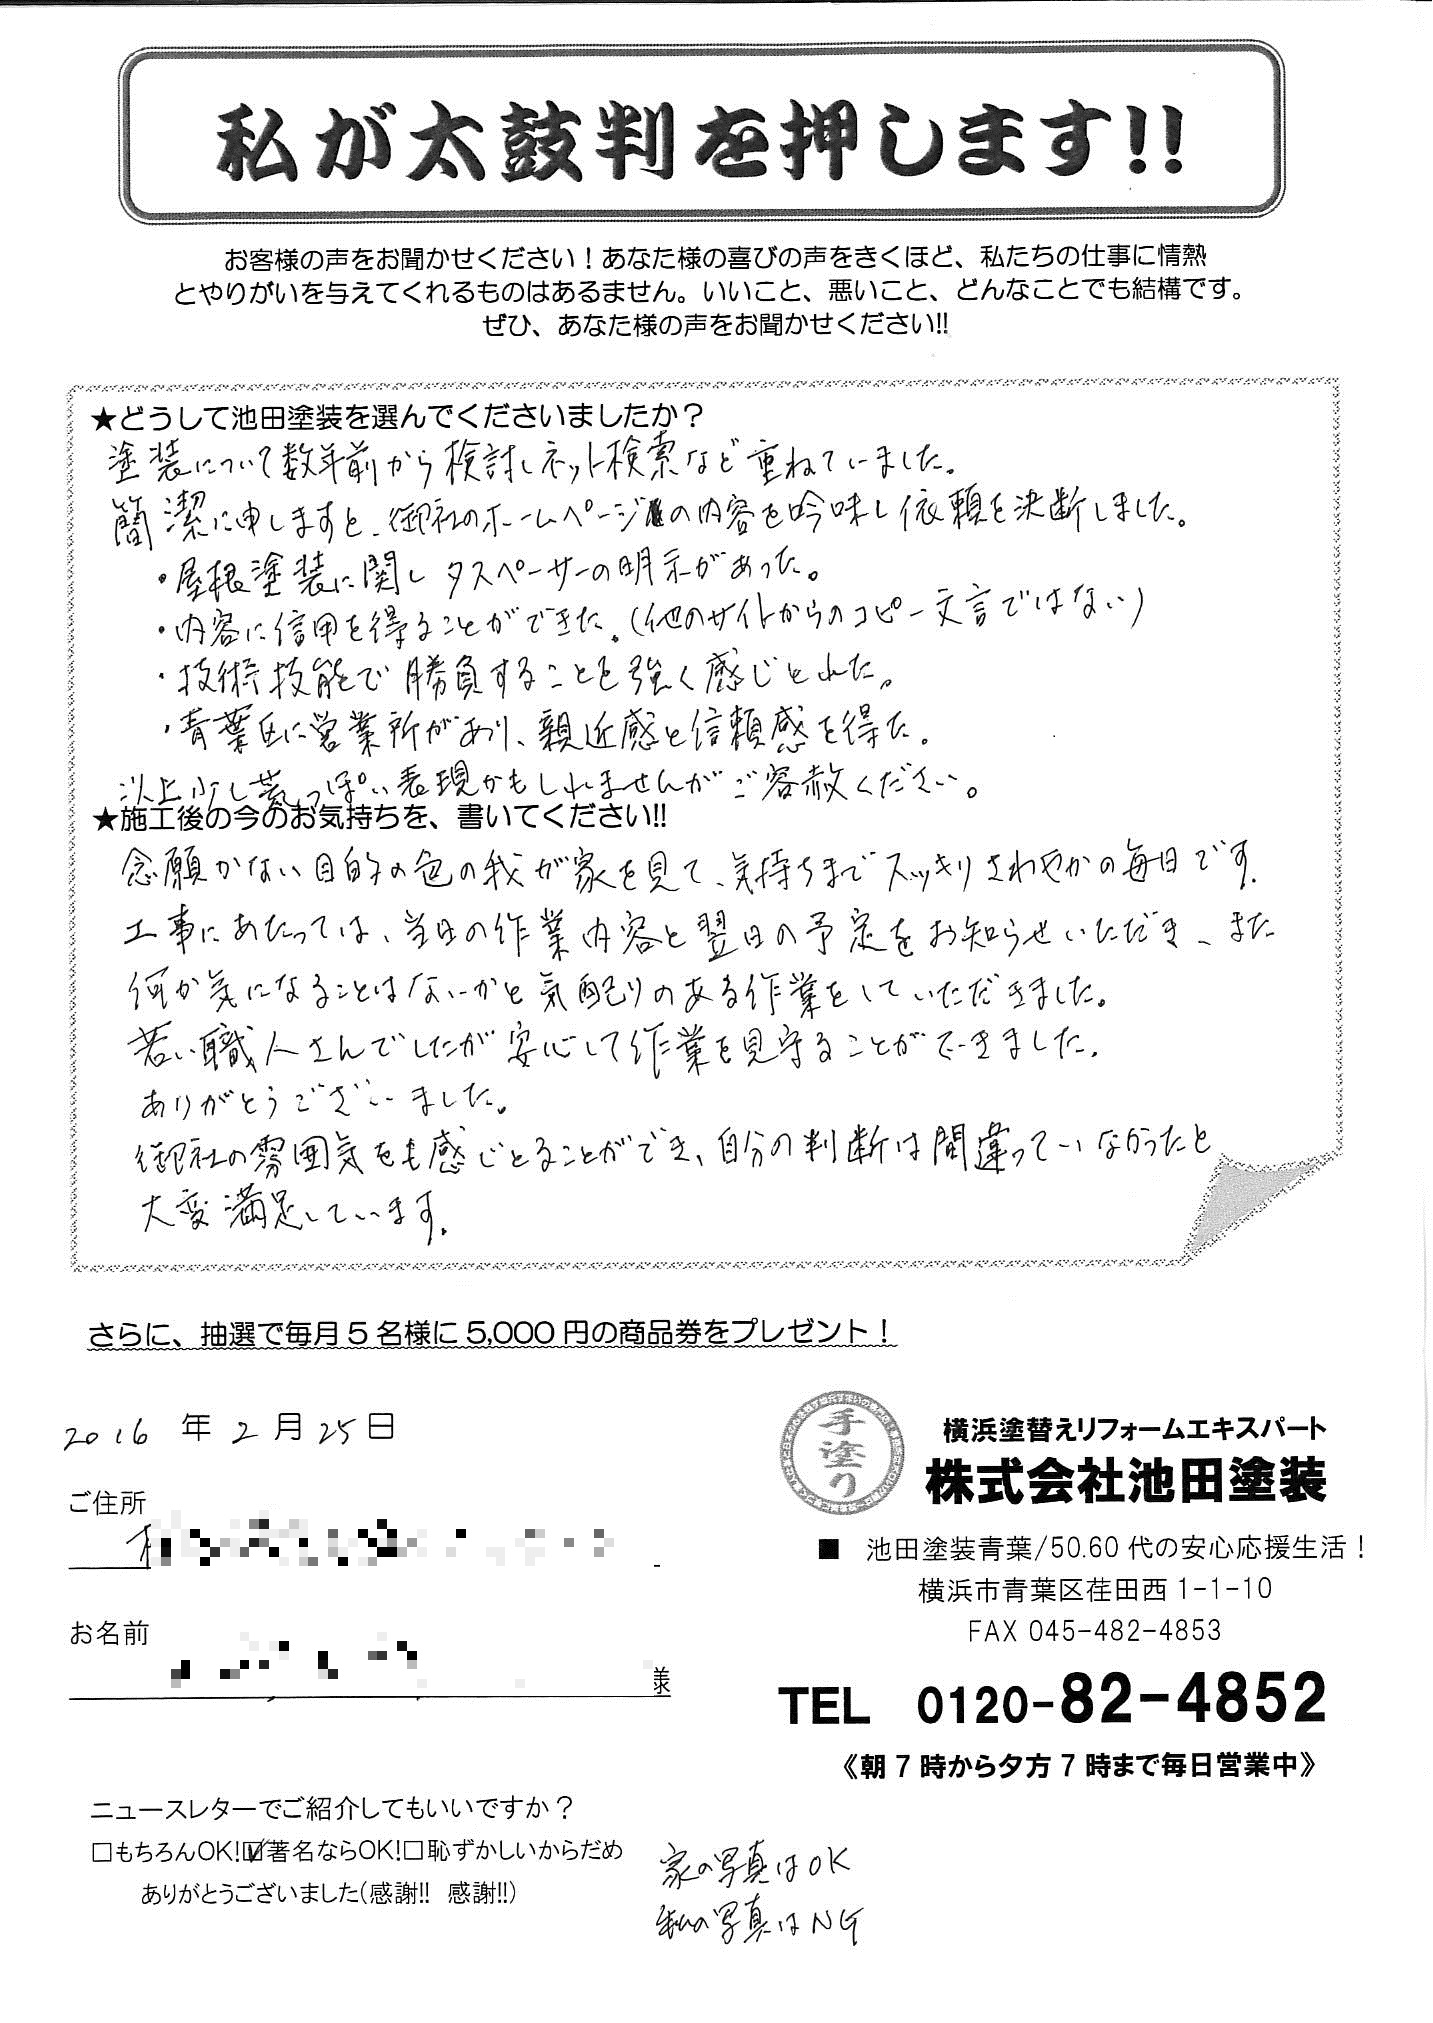 私が太鼓判を押します!!
お客様の声をお聞かせください！あなた様の喜びの声をきくほど、私たちの仕事に情熱
とやりがいを与えてくれるものはあるません。いいこと、悪いこと、どんなことでも結構です。
ぜひ、あなた様の声をお聞かせください!!
★どうして池田塗装を選んでくださいましたか？
塗装について数年前から検討しネット検索など重ねていました。
簡潔に申しますと、御社のホームページの内容を吟味し依頼を決断しました。
・屋根塗装に関しタスペーサーの明示があった。
・内容に信用を得ることができた。(他のサイトからのコピー文言ではない)
・技術技能で勝負することを強く感じとれた。
・青葉区に営業所があり、親近感と信頼感を得た。
以上少し荒っぽい表現かもしれませんがご容赦ください。
★施工後の今のお気持ちを、書いてください!!
念願かない目的の色の我が家を見て、気持ちまでスッキリさわやかの毎日です。
工事にあたっては、当日の作業内容と翌日の予定をお知らせいただき、また
何か気になることはないかと気配りのある作業をしていただきました。
若い職人さんでしたが安心して作業を見守ることができました。
ありがとうございました。
御社の雰囲気をも感じとることができ、自分の判断は間違っていなかったと
大変満足しています。
さらに、抽選で毎月5名様に5,000円の商品券をプレゼント！
2016年2月25日
ご住所
お名前
様
手塗り
横浜塗替えリフォームエキスパート
株式会社池田塗装
■ 池田塗装青葉/50.60代の安心応援生活！
横浜市青葉区荏田西1-1-10
FAX 045-482-4853
TEL 0120-82-4852
《朝7時から夕方7時まで毎日営業中》
ニュースレターでご紹介してもいいですか？
□もちろんOK!☑著名ならOK!□恥ずかしいからだめ
ありがとうございました(感謝!! 感謝!!)
家の写真はOK
私の写真はNG